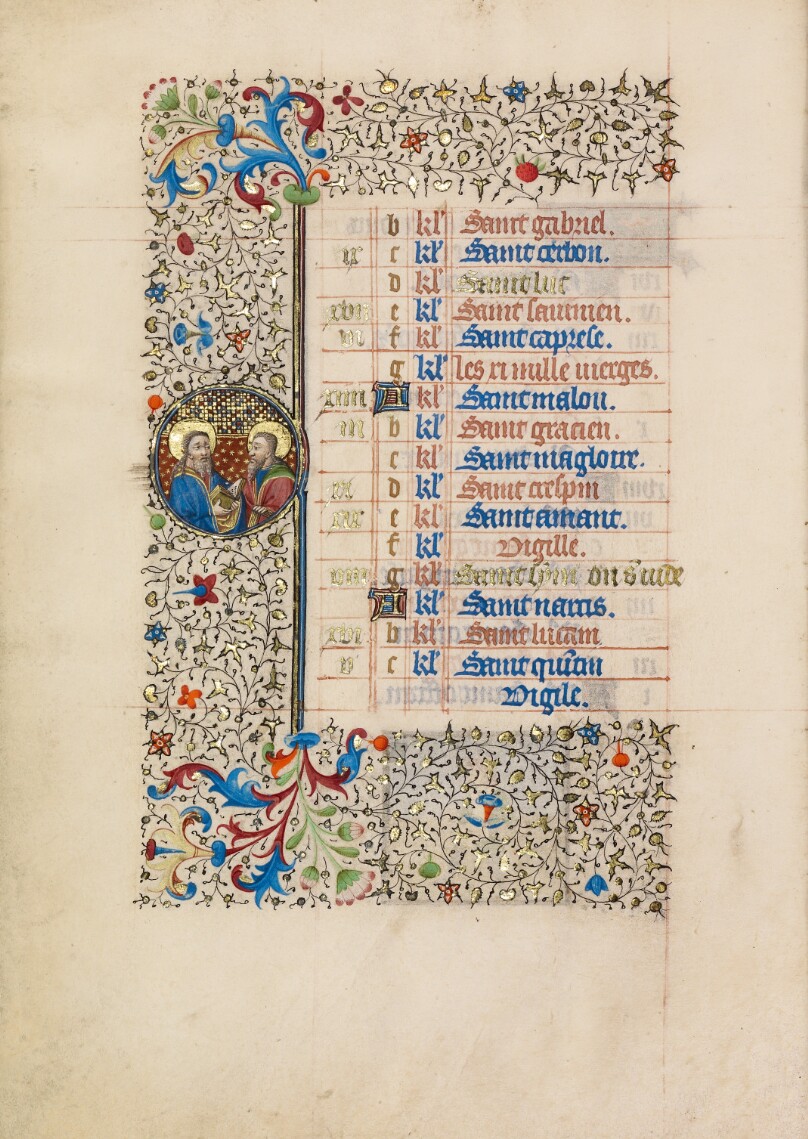 b kl' Saint gabriel.
ix c kl' Saint cerbon.
d kl' Saint luc
xvii e kl' Saint saturnien.
vi f kl' Saint caprese.
g kl' les xi mille vierges.
xiiii A kl' Saint malou.
iii b kl' Saint gracien.
c kl' Saint magloire.
xi d kl' Saint crespin
xix e kl' Saint amant.
f kl' Vigille.
viii g kl' Saint symon
A kl' Saint narcis.
xvi b kl' Saint lucain
v c kl' Saint quintin
Vigile.